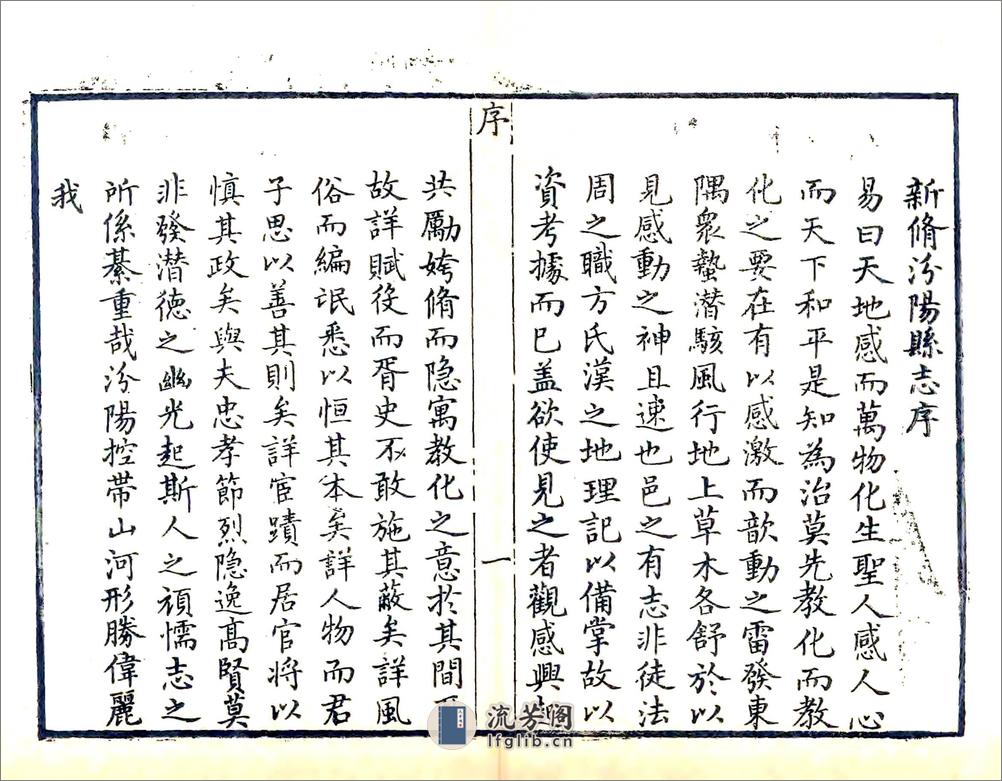 新脩汾陽縣志序
易曰天地感而萬物化生聖人感人心
而天下和平是知為治莫先教化而教
化之要在有以感激而歆動之雷發東
隅衆蟄潜駭風行地上草木各舒於以
見感動之神且速也邑之有志非徒法
周之職方氏漢之地理記以備掌故以
資考據而已盖欲使見之者觀感興
序
一
共勵姱脩而隐寓教化之意於其間
故詳賦役而胥史不敢施其蔽矣詳風
俗而編氓悉以恒其本矣詳人物而君
子思以善其則矣詳宦蹟而居官將以
慎其政矣與夫忠孝節烈隐逸高賢莫
非發潜德之幽光起斯人之頑懦志之
所係綦重哉汾陽控带山河形勝偉麗
我
流芳阁
lfglib.cn